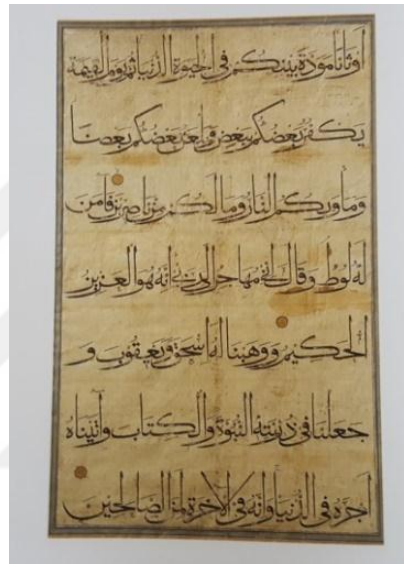 اوثانا مودة بينكم فى الحيوة الدنيا ثم يوم القيمة
يكفر بعضكم ببعض ويلعن بعضكم بعضا
وماويكم النار وما لكم من ناصرين فامن
له لوط وقال انى مهاجر الى ربى انه هو العزيز
الحكيم ووهبنا له اسحق ويعقوب و
جعلنا فى ذريته النبوة والكتاب واتيناه
اجره فى الدنيا وانه فى الاخرة لمن الصالحين